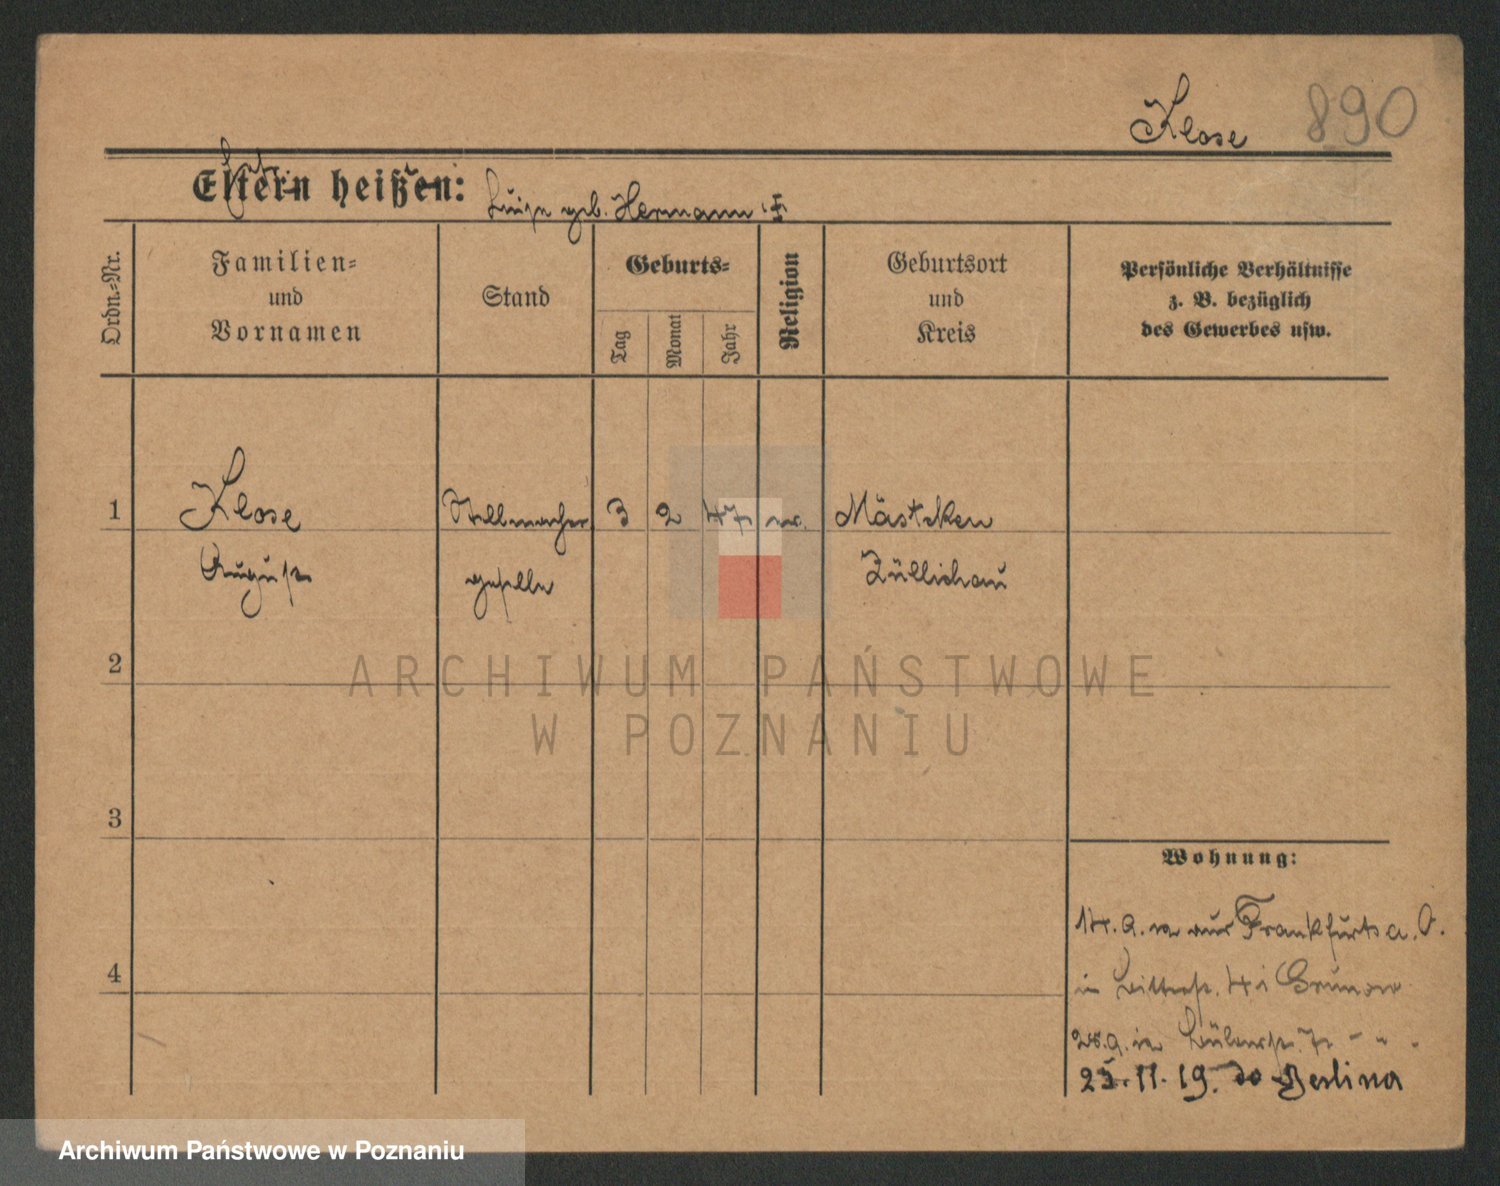 Klose 890
Eltern heißen: Luise geb. Hermann
Ordn.-Nr.
Familien-
und
Vornamen
Stand
Geburts-
Tag
Monat
Jahr
Religion
Geburtsort
und
Kreis
Persönliche Verhältnisse
z. B. bezüglich
des Gewerbes usw.
1 Klose Stellmacher 3 2 47 ev. Mästchen
August geselle Züllichau
2
ARCHIWUM PAŃSTWOWE
W POZNANIU
3
Wohnung:
14.9. aus Frankfurt a. O.
4
in 4 Grunow
28.9. in 7
25.11.19. do Berlina
Archiwum Państwowe w Poznaniu